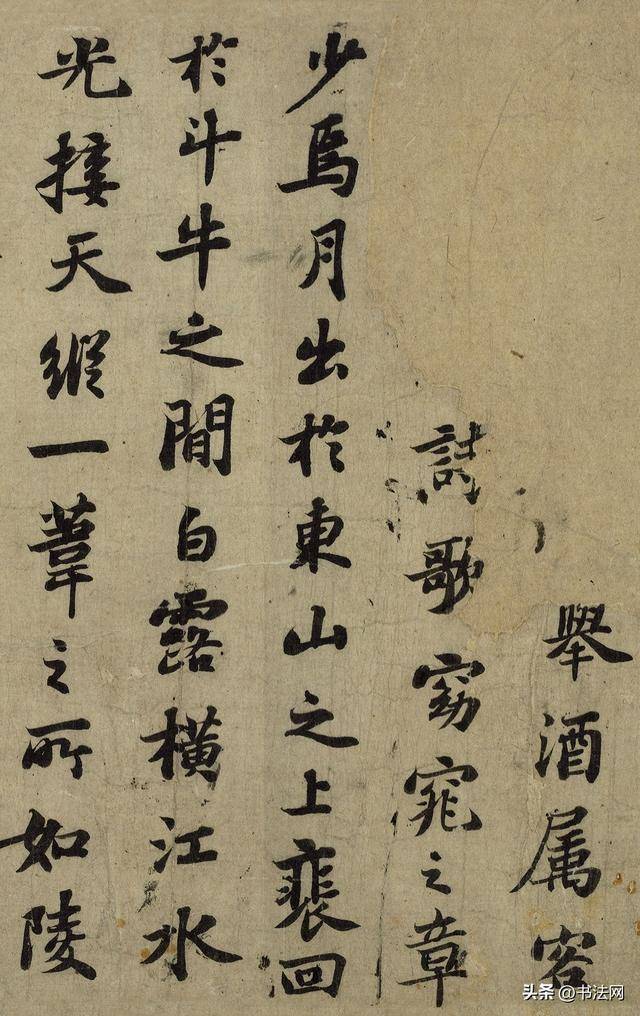 舉酒属客
詩歌窈窕之章
少焉月出於東山之上裴回
於斗牛之間白露橫江水
光接天縱一葦之所如陵
头条 @书法网